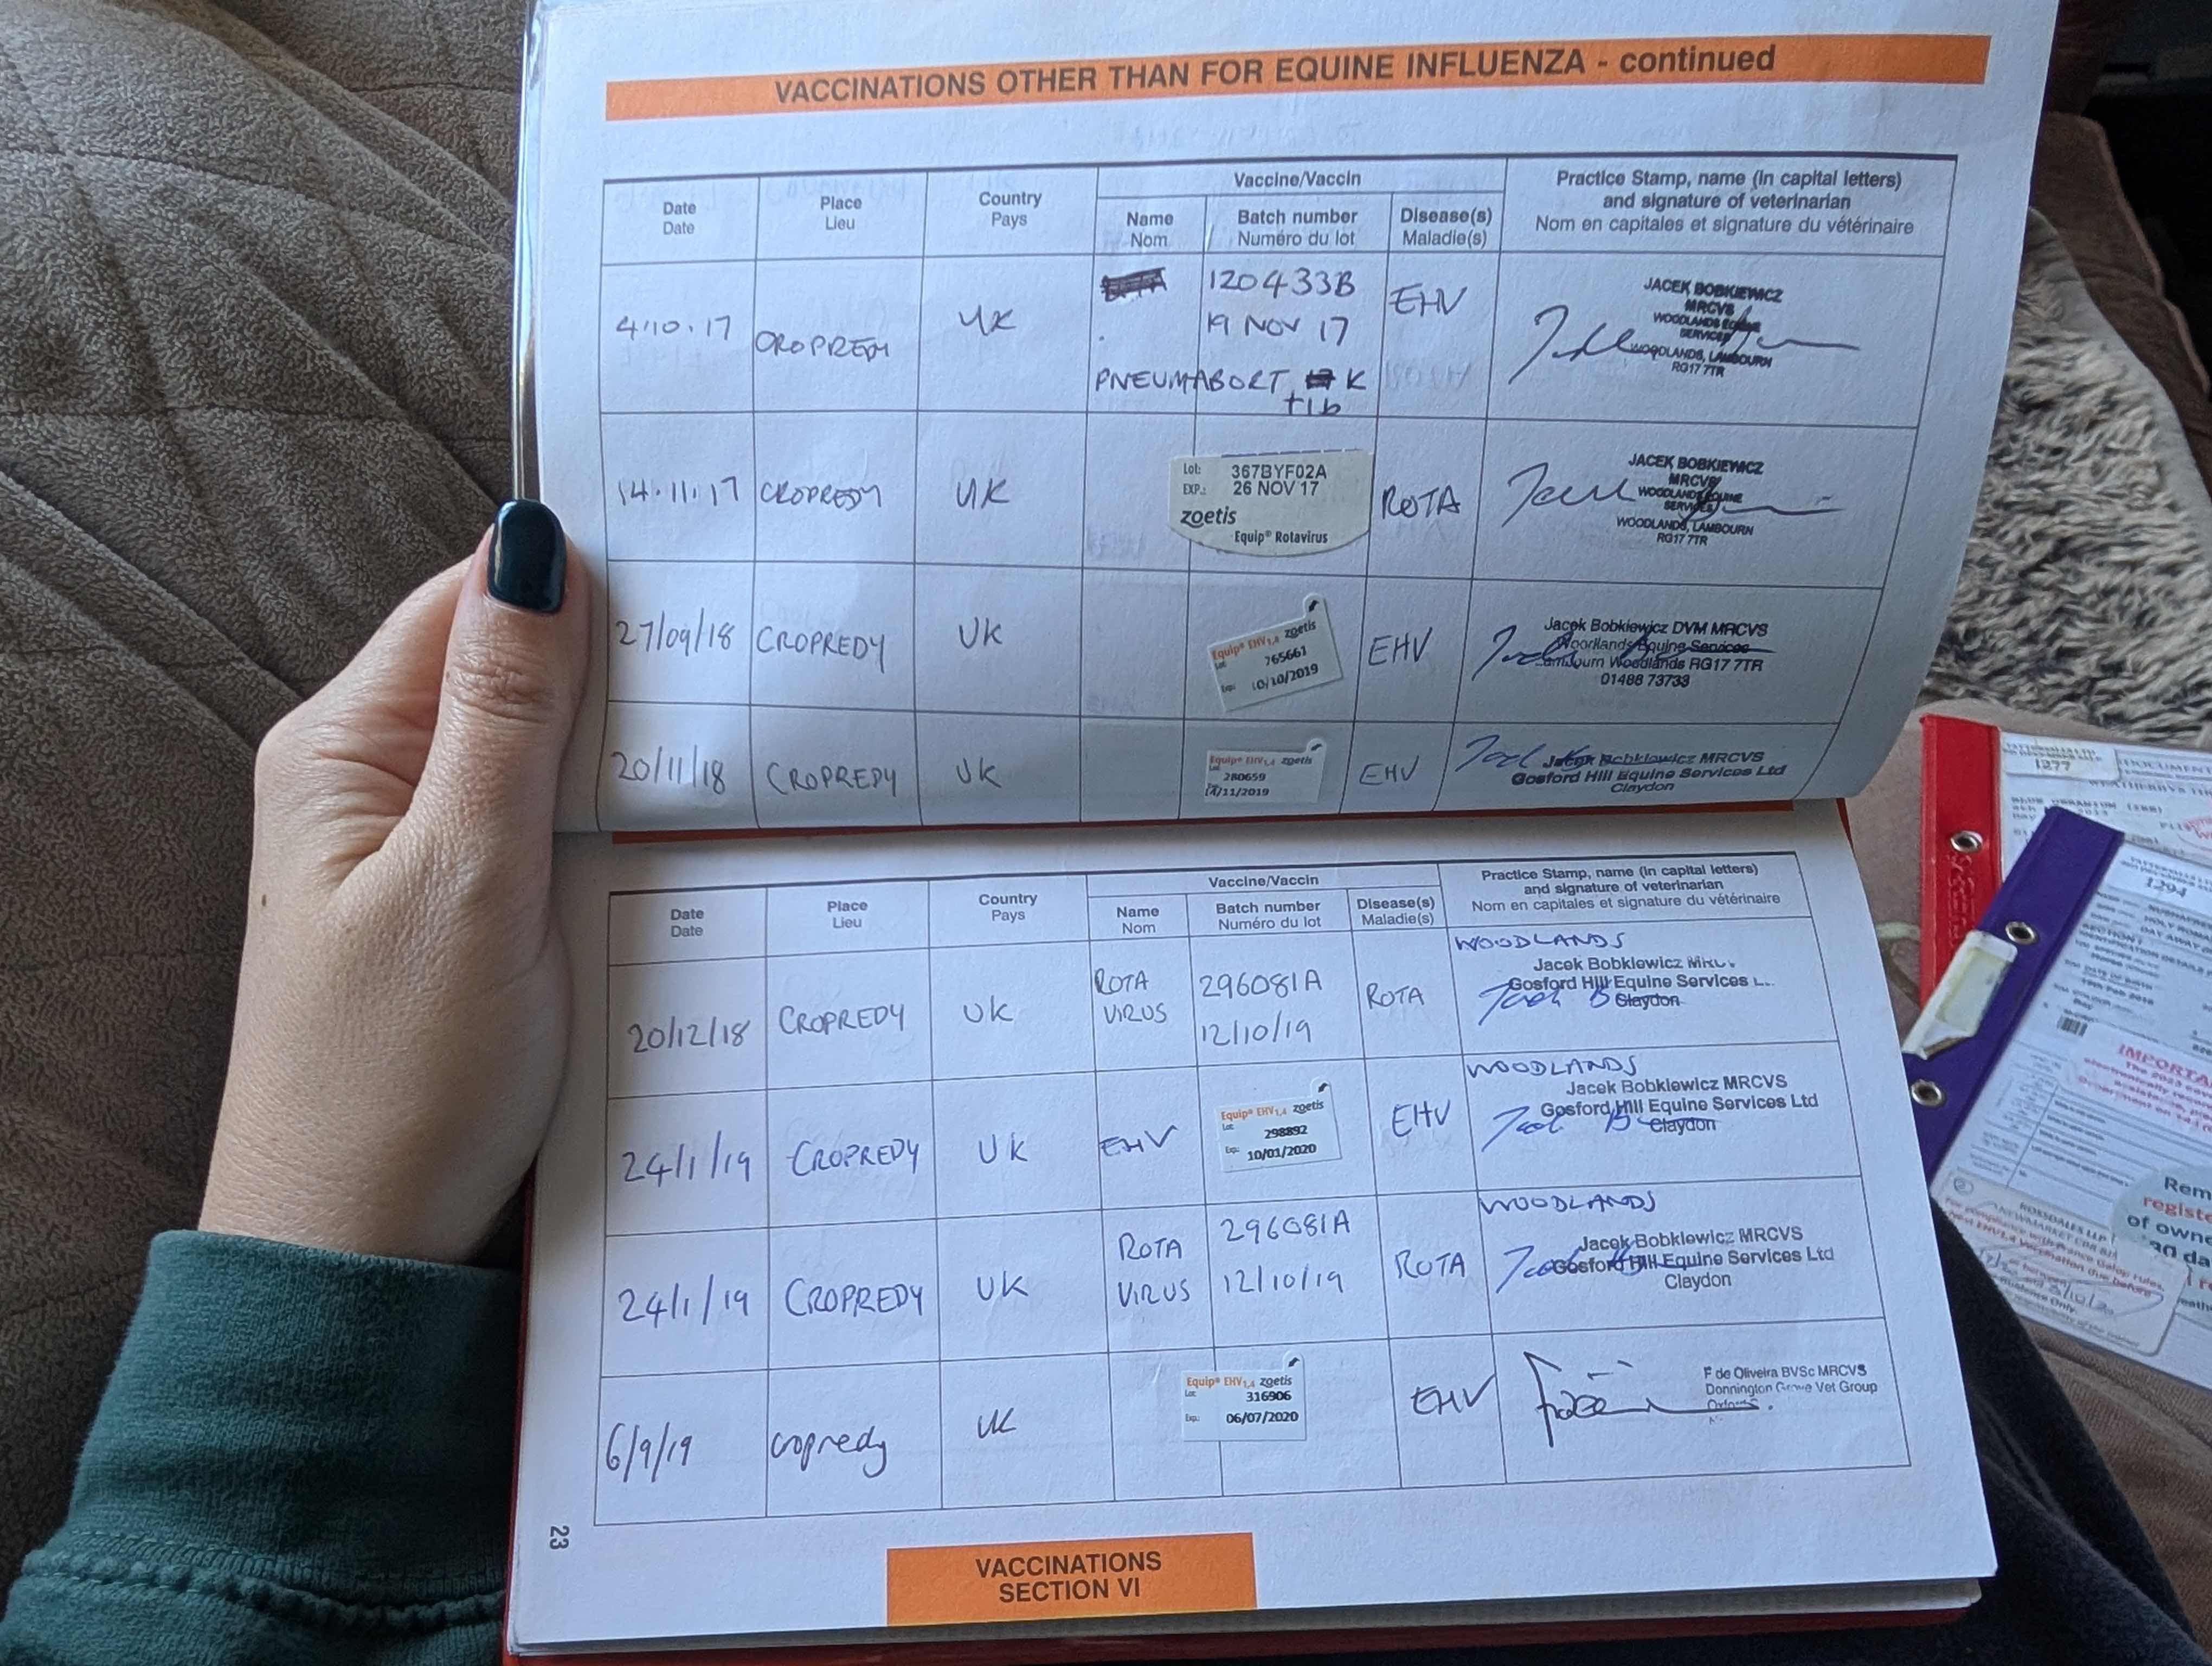 VACCINATIONS OTHER THAN FOR EQUINE INFLUENZA - continued
Date
Date
Place
Lieu
Country
Pays
Vaccine/Vaccin
Name
Nom
Batch number
Numéro du lot
Disease(s)
Maladie(s)
Practice Stamp, name (in capital letters)
and signature of veterinarian
Nom en capitales et signature du vétérinaire
4.10.17
CROPREDY
UK
120433B
19 NOV 17
PNEUMABORT K
+1b
EHV
JACEK BOBKIEWICZ
MRCVS
WOODLANDS EQUINE
SERVICES
WOODLANDS, LAMBOURN
RG17 7TR
14.11.17
CROPREDY
UK
Lot: 367BYF02A
EXP.: 26 NOV 17
zoetis
Equip® Rotavirus
ROTA
JACEK BOBKIEWICZ
MRCVS
WOODLANDS EQUINE
SERVICES
WOODLANDS, LAMBOURN
RG17 7TR
27/09/18
CROPREDY
UK
Equip® EHV1,4 zoetis
Lot: 265661
Exp: 10/10/2019
EHV
Jacek Bobkiewicz DVM MRCVS
Woodlands Equine Services
Lambourn Woodlands RG17 7TR
01488 73733
20/11/18
CROPREDY
UK
Equip® EHV1,4 zoetis
Lot
280659
11/2019
EHV
Jacek Bobkiewicz MRCVS
Gosford Hill Equine Services Ltd
Claydon
Date
Date
Place
Lieu
Country
Pays
Vaccine/Vaccin
Name
Nom
Batch number
Numéro du lot
Disease(s)
Maladie(s)
Practice Stamp, name (in capital letters)
and signature of veterinarian
Nom en capitales et signature du vétérinaire
20/12/18
CROPREDY
UK
ROTA
VIRUS
296081A
12/10/19
ROTA
WOODLANDS
Jacek Bobkiewicz
Gosford Hill Equine Services
Claydon
24/1/19
CROPREDY
UK
EHV
Equip® EHV1,4 zoetis
Lot: 298892
Exp: 10/01/2020
EHV
WOODLANDS
Jacek Bobkiewicz MRCVS
Gosford Hill Equine Services Ltd
Claydon
24/1/19
CROPREDY
UK
ROTA
VIRUS
296081A
12/10/19
ROTA
WOODLANDS
Jacek Bobkiewicz MRCVS
Gosford Hill Equine Services Ltd
Claydon
6/9/19
cropredy
UK
Equip® EHV1,4 zoetis
Lot: 316906
Exp: 06/07/2020
EHV
F de Oliveira BVSc MRCVS
Donnington Grove Vet Group
23
VACCINATIONS
SECTION VI
1277
1294
IMPORTA
Rem
registe
of owne
ROSSDALES LLP